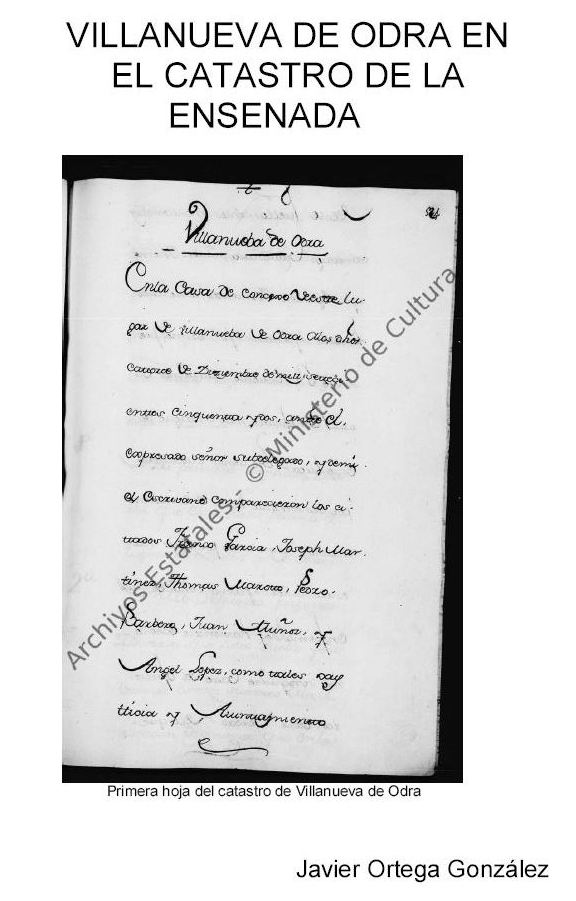 VILLANUEVA DE ODRA EN
EL CATASTRO DE LA
ENSENADA
Villanueba de Odra
Enla Casa de Concexo de este lu-
gar de villanueba de Odra alos
Catorce de Diziembre de mill setezi
entos cinquenta y dos, ante el
Expresado señor subdelegado, y demi
el Escrivano Comparecieron los ci-
tados Franco Garcia, Joseph Mar-
tinez, Thomas Pedro
Barbero, Juan Muñoz, y
Angel Lopez, como tales
tticia y Aiuntamiento
© Ministerio de Cultura
Archivos Estatales -
Primera hoja del catastro de Villanueva de Odra
Javier Ortega González